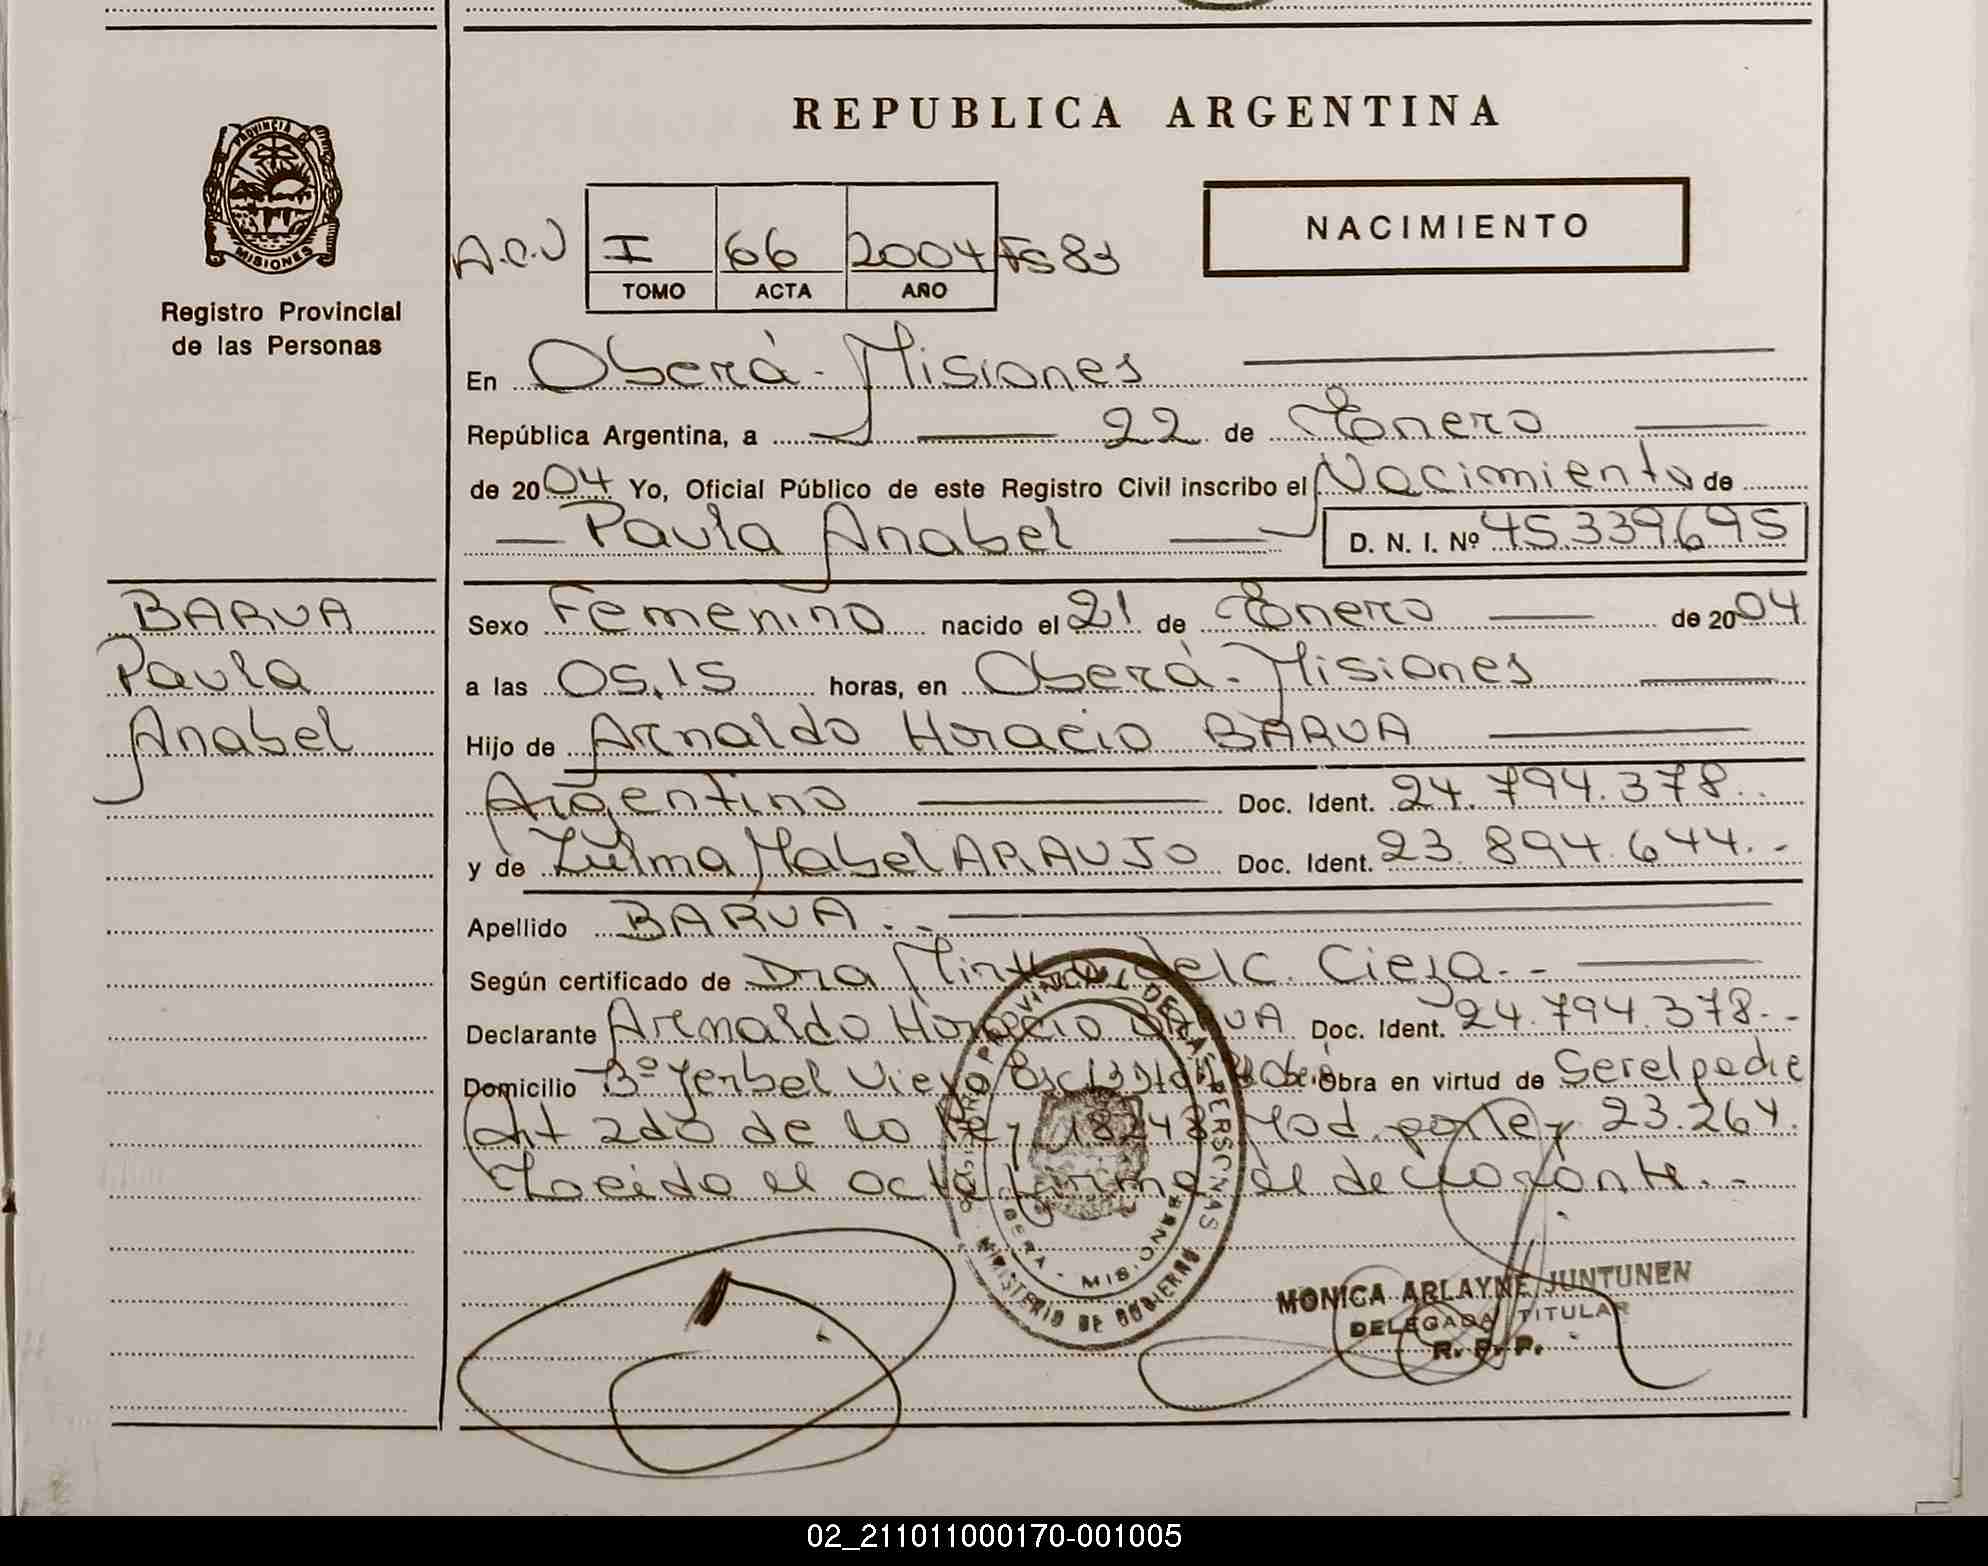 REPUBLICA ARGENTINA
PROVINCIA DE
MISIONES
Registro Provincial
de las Personas
NACIMIENTO
A.C.U I 66 2004 Fs 83
TOMO ACTA AÑO
En Oberá - Misiones
República Argentina, a 22 de Enero
de 2004 Yo, Oficial Público de este Registro Civil inscribo el Nacimiento de
Paula Anabel D. N. I. Nº 45.339.695
BARUA
Paula
Anabel
Sexo Femenino nacido el 21 de Enero de 2004
a las 05,15 horas, en Oberá - Misiones
Hijo de Arnaldo Horacio BARUA
Argentino Doc. Ident. 24.794.378..
y de Zulma Mabel ARAUJO Doc. Ident. 23.894.644.-
Apellido BARUA.-
Según certificado de Dra Mirtha del C. Cieza.-
Declarante Arnaldo Horacio BARUA Doc. Ident. 24.794.378.-
Domicilio Bº Yerbal Viejo Obra en virtud de Serelpadre
Art 2do de la Ley 18248 Mod. por Ley 23.264.
Leida el acta firma el declarante.-
REGISTRO PROVINCIAL DE LAS PERSONAS
OBERA - MISIONES
MINISTERIO DE GOBIERNO
MONICA ARLAYNE JUNTUNEN
DELEGADA TITULAR
R. P. P.
02_211011000170-001005